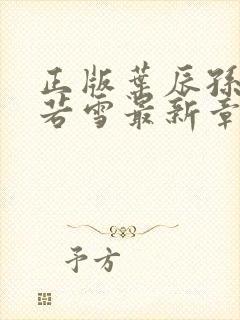 正版葉辰孫
若雪最新章
予方